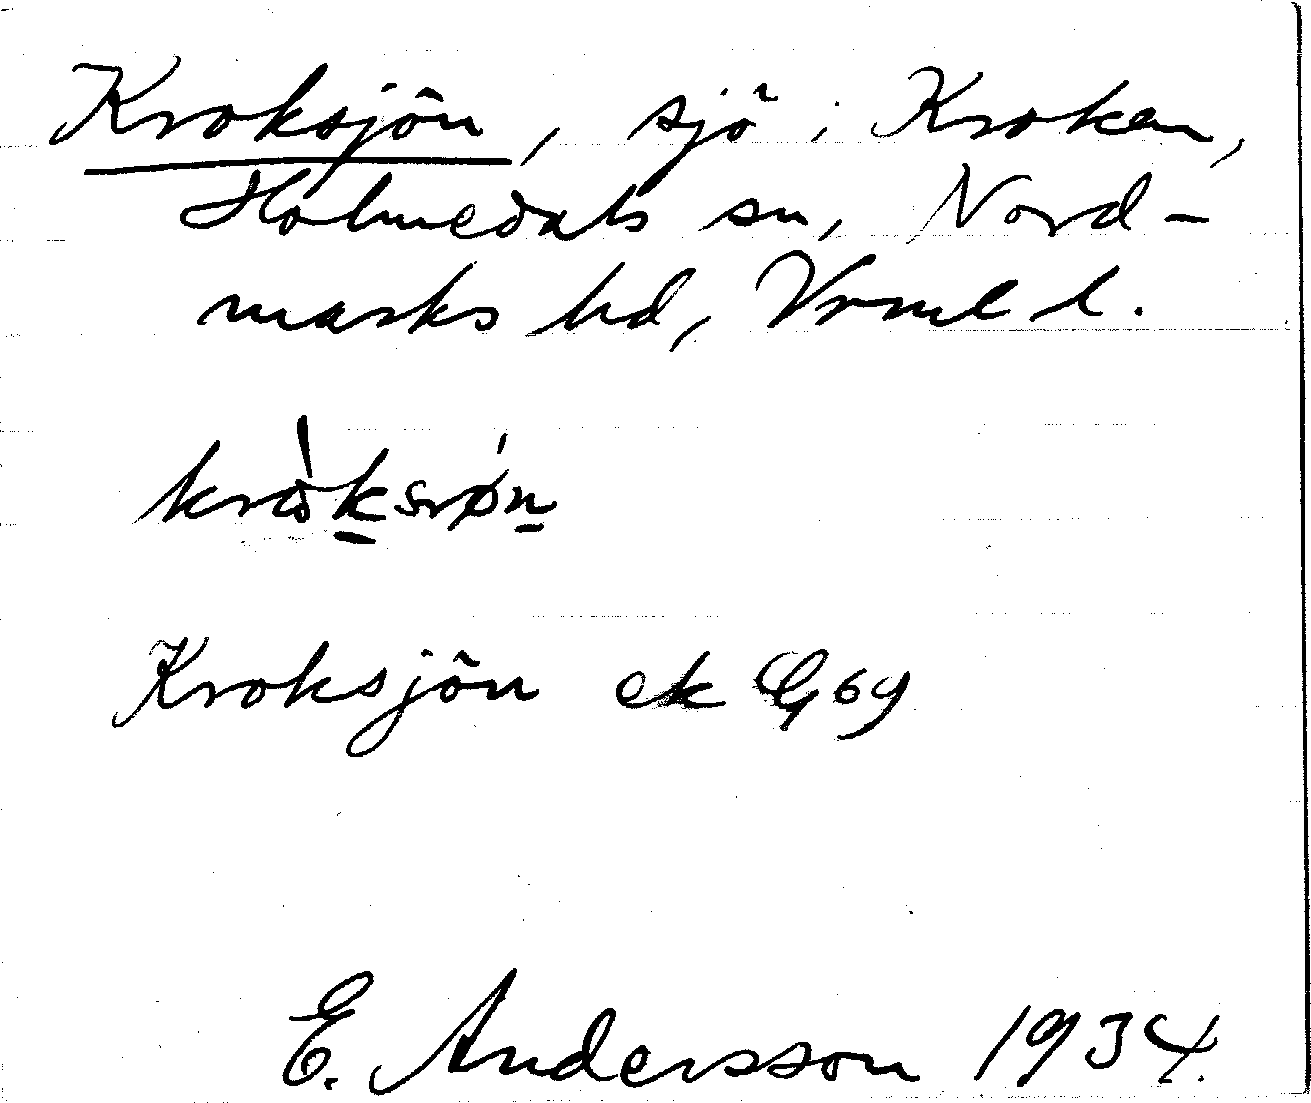 Kroksjön, sjö i Kroken,
Holmedals sn, Nord-
marks hd, Vrml l.
Kroksjön ek G69
E. Andersson 1934.